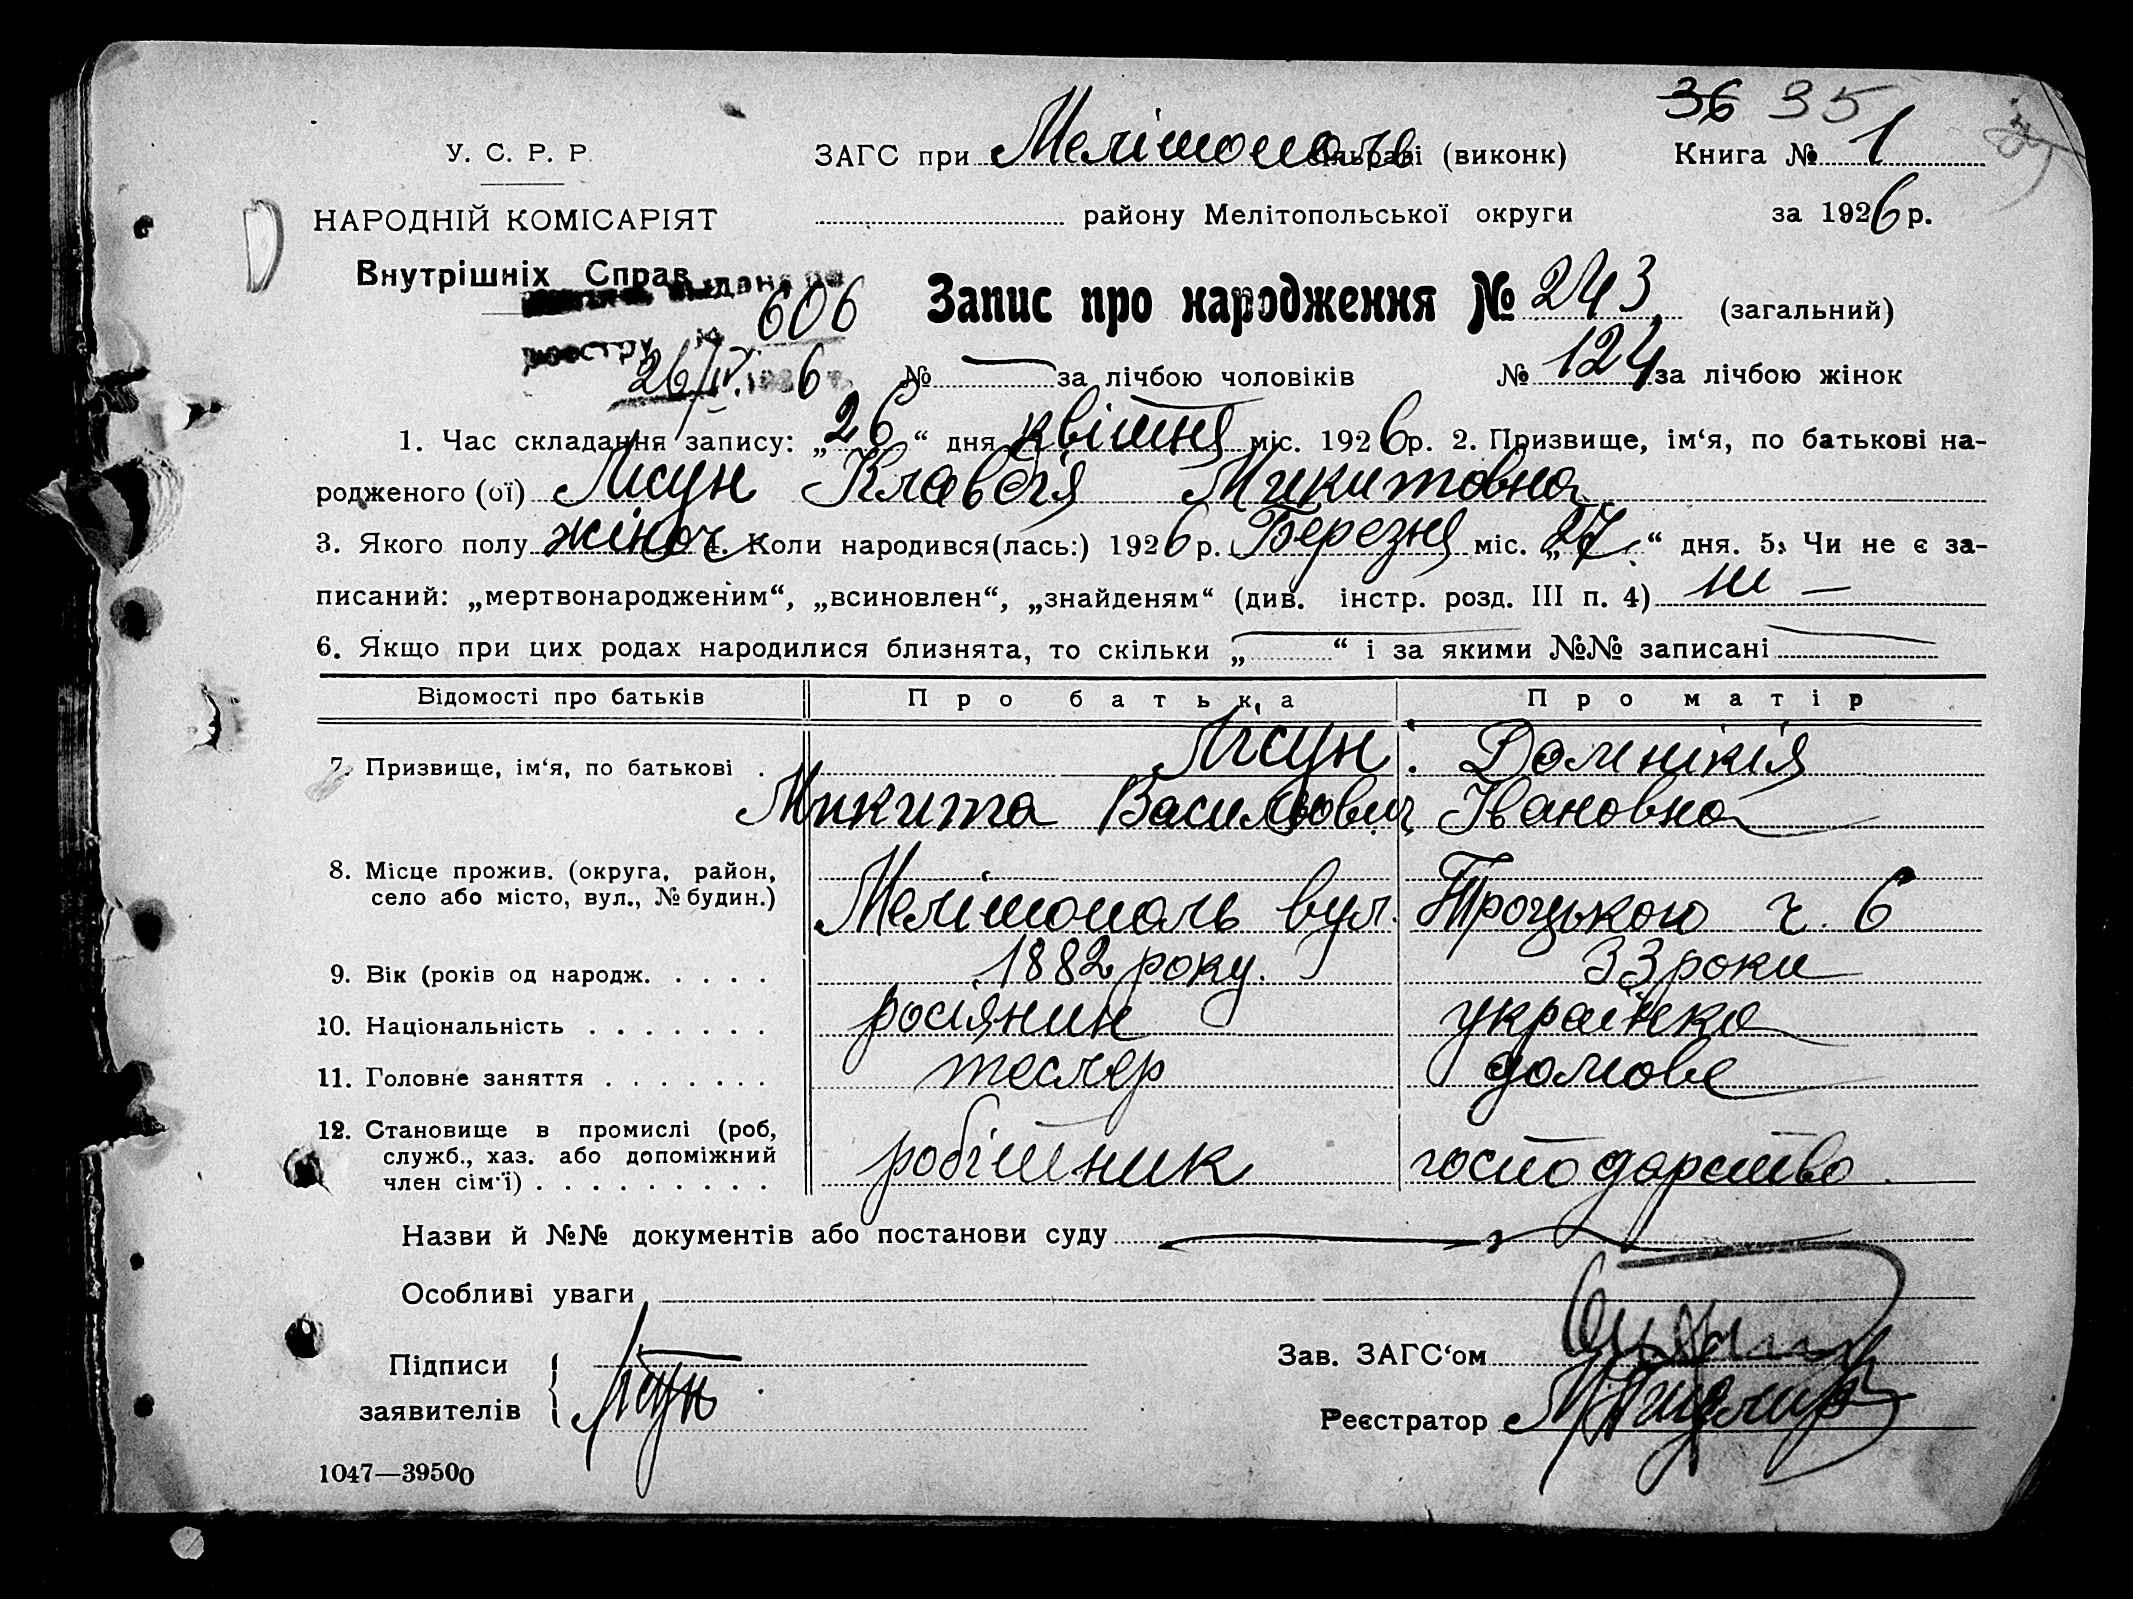 36 35
У. С. Р. Р. ЗАГС при Мелітополь сільраді (виконк) Книга № 1
НАРОДНІЙ КОМІСАРІЯТ районy Мелітопольської округи за 1926 р.
Внутрішніх Справ
видана по
606
реєстру №
26/IV 1926 г.
Запис про народження № 243 (загальний)
№ — за лічбою чоловіків № 124 за лічбою жінок
1. Час складання запису: „26“ дня квітня міс. 1926 р. 2. Призвище, ім‘я, по батькові на-
родженого (ої) Лісун Клавдія Микитовна
3. Якого полу жіноч 4. Коли народився(лась:) 1926 р. Березня міс. „27“ дня. 5. Чи не є за-
писаний: „мертвонародженим“, „всиновлен“, „знайденям“ (див. інстр. розд. III п. 4) ні —
6. Якщо при цих родах народилися близнята, то скільки „—“ і за якими №№ записані —
Відомості про батьків Про батька Про матір
7. Призвище, ім‘я, по батькові . Лісун : Домникія
Микита Васильович Івановна
8. Місце прожив. (округа, район,
село або місто, вул., № будин.) Мелітополь вул. Троцького ч. 6
9. Вік (років од народж. . . . . 1882 року. 33 роки
10. Національність . . . . . . . росіянин українка
11. Головне заняття . . . . . . . тесляр домове
12. Становище в промислі (роб,
служб., хаз. або допоміжний
член сім‘ї) . . . . . . . . . робітник господарство
Назви й №№ документів або постанови суду —
Особливі уваги
Підписи Зав. ЗАГС‘ом
заявителів Лісун Реєстратор
1047—39500